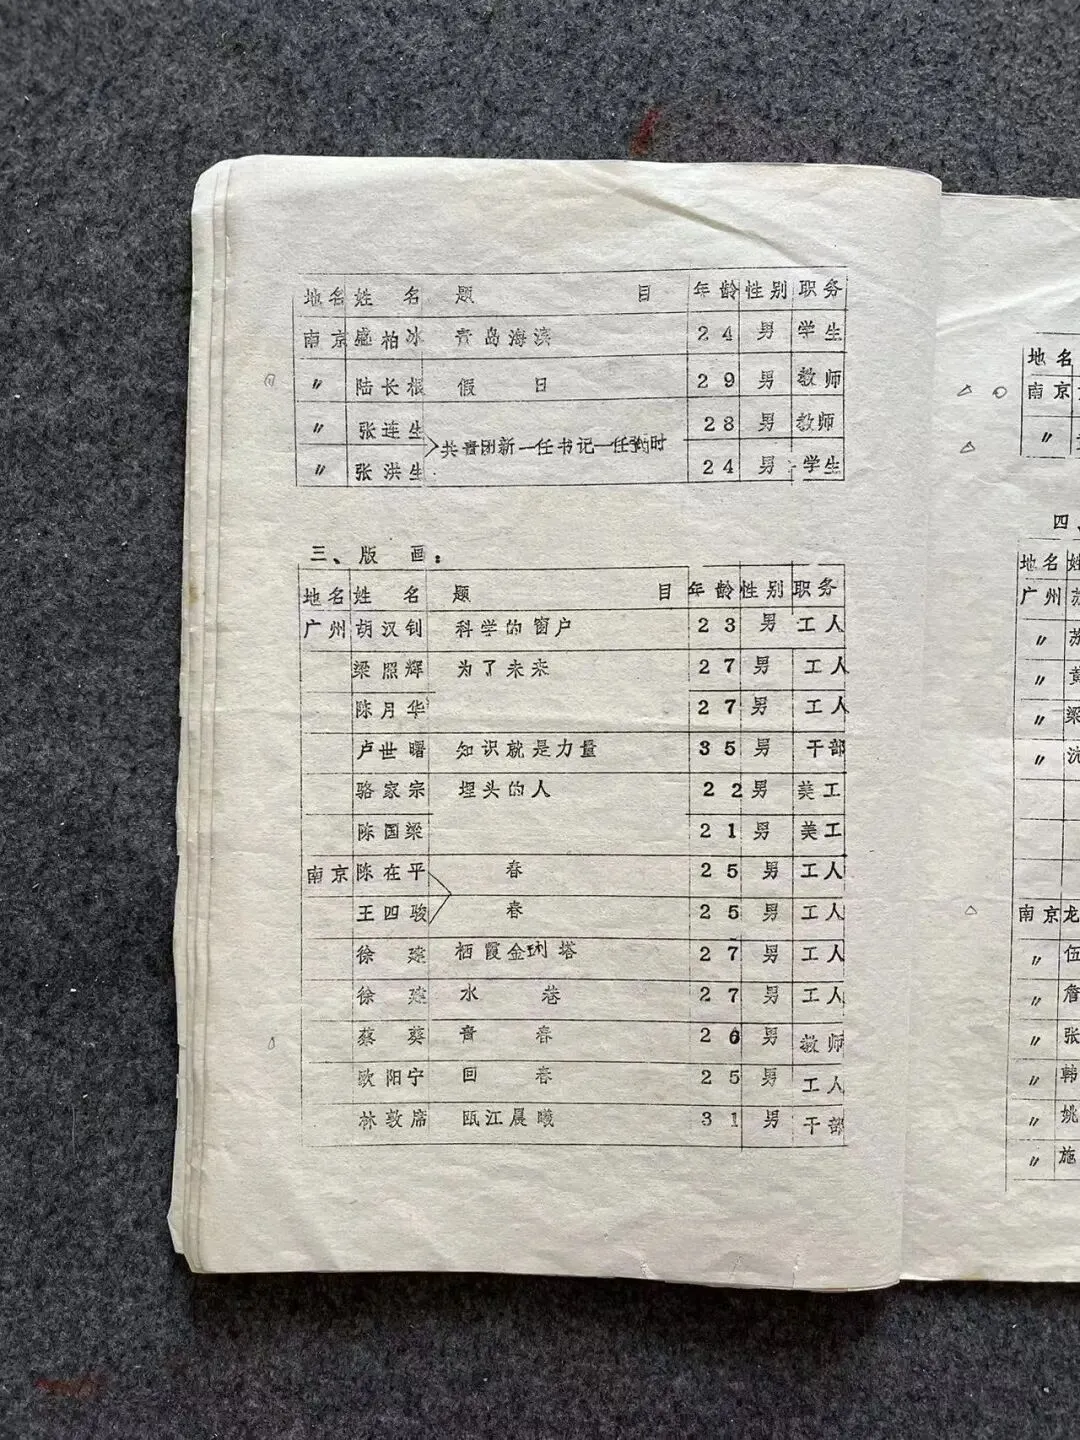 地名 姓名 题目 年龄 性别 职务
南京 盛柏冰 青岛海滨 24 男 学生
〃 陆长根 假日 29 男 教师
〃 张连生 28 男 教师
共青团新一任书记一任
〃 张洪生 24 男 学生
三、版画：
地名 姓名 题目 年龄 性别 职务
广州 胡汉钊 科学的窗户 23 男 工人
梁照辉 为了未来 27 男 工人
陈月华 27 男 工人
卢世曙 知识就是力量 35 男 干部
骆家宗 埋头的人 22 男 美工
陈国梁 21 男 美工
南京 陈在平 春 25 男 工人
王四骏 春 25 男 工人
徐 栖霞金 塔 27 男 工人
徐 水巷 27 男 工人
蔡葵 青春 26 男 教师
欧阳宁 回春 25 男 工人
林敦席 瓯江晨曦 31 男 干部
地名
南京
〃
四、
地名 姓
广州 苏
〃 苏
〃 黄
〃 梁
〃 沈
南京 龙
〃 伍
〃 詹
〃 张
〃 韩
〃 姚
〃 施